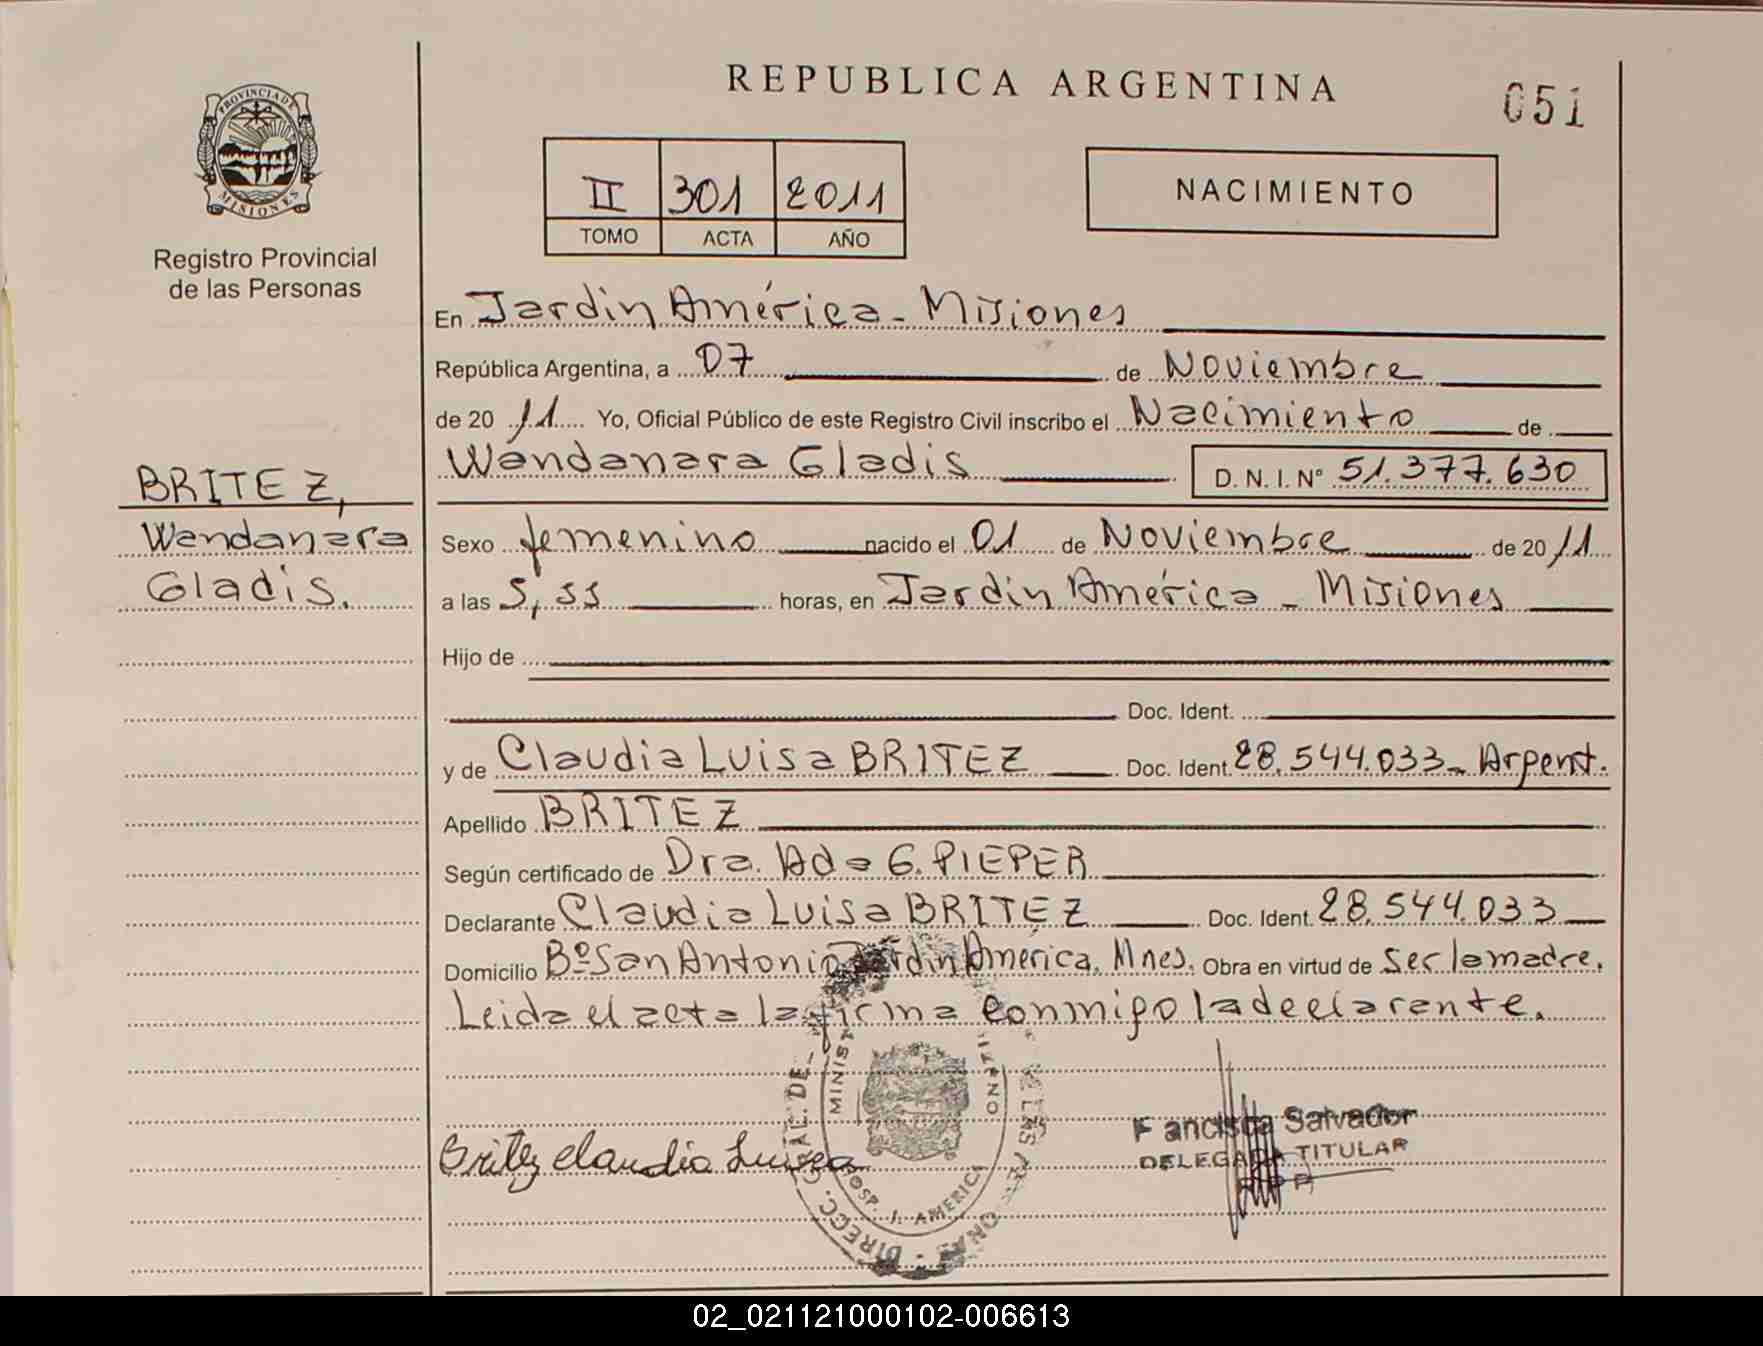 REPUBLICA ARGENTINA
051
PROVINCIA DE
MISIONES
Registro Provincial
de las Personas
II 301 2011
TOMO ACTA AÑO
NACIMIENTO
En Jardin América - Misiones
República Argentina, a 07 de Noviembre
de 20 11 Yo, Oficial Público de este Registro Civil inscribo el Nacimiento de
Wandanara Gladis D. N. I. Nº 51.377.630
BRITEZ,
Wandanara
Gladis.
Sexo femenino nacido el 01 de Noviembre de 20 11
a las 5,55 horas, en Jardin América - Misiones
Hijo de
Doc. Ident.
y de Claudia Luisa BRITEZ Doc. Ident. 28.544.033- Argent.
Apellido BRITEZ
Según certificado de Dra. Ada G. PIEPER
Declarante Claudia Luisa BRITEZ Doc. Ident. 28.544.033
Domicilio Bº San Antonio Jardin América, Mnes. Obra en virtud de ser la madre.
Leida el acta la firma conmigo la declarante.
Britez Claudia Luisa
DIRECC. GRAL. DE
MINIST
HOSP. J. AMERICA
F ancisca Salvador
DELEGADA TITULAR
R P P
02_021121000102-006613